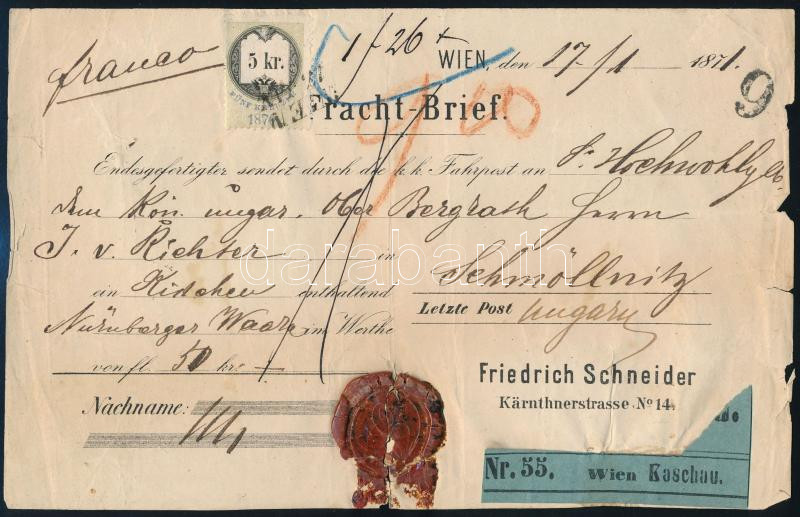 franco
5 kr.
FÜNF KREUZER
1870
1/26+
WIEN, den 17/1 1871.
9
Fracht-Brief.
Endesgefertigter sendet durch die k.k. Fahrpost an Sr Hochwohlgeb.
dem Kön. ungar. Ober Bergrath Herrn
J. v. Richter in Schmöllnitz
ein Kistchen enthaltend
Letzte Post Ungarn
Nürnberger Waare im Werthe
von fl. 50 kr.
Friedrich Schneider
Kärnthnerstrasse No 14.
Nachname:
Nr. 55. Wien Kaschau.
darabanth